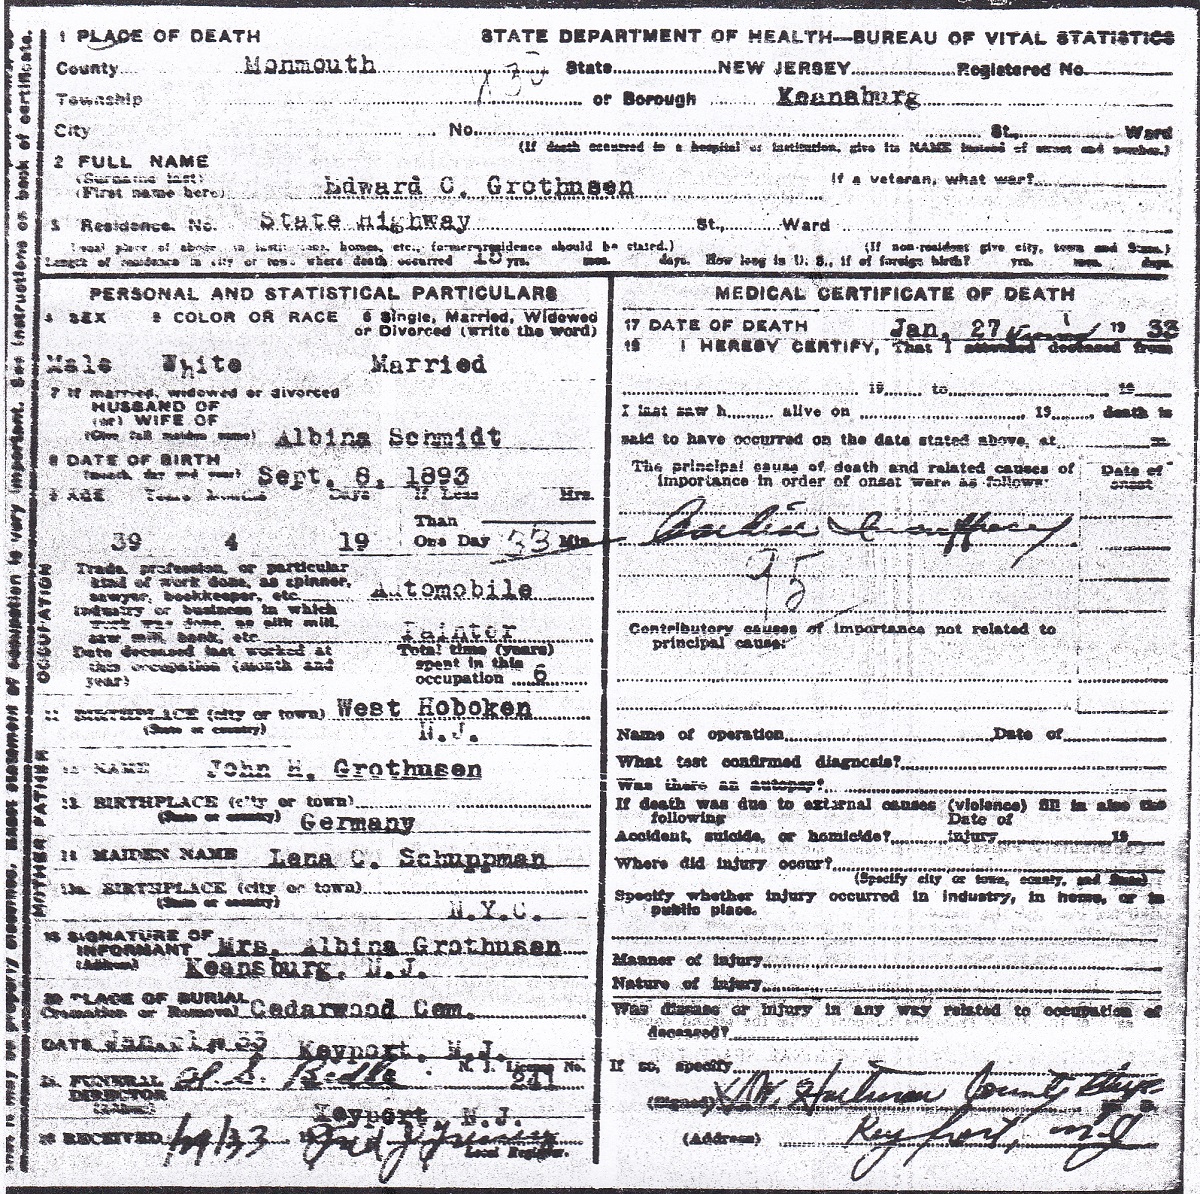 1 PLACE OF DEATH
STATE DEPARTMENT OF HEALTH—BUREAU OF VITAL STATISTICS
County Monmouth State NEW JERSEY Registered No.
Township or Borough Keansburg
City No. St., Ward
(If death occurred in a hospital or institution, give its NAME instead of street and number.)
2 FULL NAME
(Surname last)
(First name here) Edward C. Grothusen If a veteran, what war?
3 Residence. No. State Highway St., Ward
(Usual place of abode, in institutions, homes, etc., former residence should be stated.) (If non-resident give city, town and State.)
Length of residence in city or town where death occurred 15 yrs. mos. days. How long in U. S., if of foreign birth? yrs. mos. days.
PERSONAL AND STATISTICAL PARTICULARS
4 SEX 5 COLOR OR RACE 6 Single, Married, Widowed
or Divorced (write the word)
Male White Married
7 If married, widowed or divorced
HUSBAND OF
(or) WIFE OF
(Give full maiden name) Albina Schmidt
8 DATE OF BIRTH
(month, day and year) Sept. 8, 1893
9 AGE Years Months Days If Less Hrs.
Than
39 4 19 One Day 33 Min.
OCCUPATION
Trade, profession, or particular
kind of work done, as spinner,
sawyer, bookkeeper, etc. Automobile
Industry or business in which
work was done, as silk mill,
saw mill, bank, etc. Painter
Date deceased last worked at
this occupation (month and
year)
Total time (years)
spent in this
occupation 6
11 BIRTHPLACE (city or town) West Hoboken
(State or country) N.J.
FATHER
12 NAME John H. Grothusen
13 BIRTHPLACE (city or town)
(State or country) Germany
MOTHER
14 MAIDEN NAME Lena C. Schuppman
BIRTHPLACE (city or town)
(State or country) N.Y.C.
SIGNATURE OF
INFORMANT Mrs. Albina Grothusen
(Address) Keansburg, N.J.
20 PLACE OF BURIAL
Cremation or Removal Cedarwood Cem.
DATE Jan. 31, 19 33 Keyport, N.J.
FUNERAL DIRECTOR N. J. License No. 241
(Address) Keyport, N.J.
RECEIVED 1/29/33 Local Registrar.
MEDICAL CERTIFICATE OF DEATH
17 DATE OF DEATH Jan, 27 1933
18 I HEREBY CERTIFY, That I attended deceased from
19 to 19
I last saw h alive on 19 death is
said to have occurred on the date stated above, at m
The principal cause of death and related causes of
importance in order of onset were as follows:
Date of
onset
95
Contributory causes of importance not related to
principal cause:
Name of operation Date of
What test confirmed diagnosis?
Was there an autopsy?
If death was due to external causes (violence) fill in also the
following
Date of
Accident, suicide, or homicide? injury 19
Where did injury occur?
(Specify city or town, county, and State)
Specify whether injury occurred in industry, in home, or in
public place.
Manner of injury
Nature of injury
Was disease or injury in any way related to occupation of
deceased?
If so, specify
(Signed) County
(Address) Keyport, N.J.